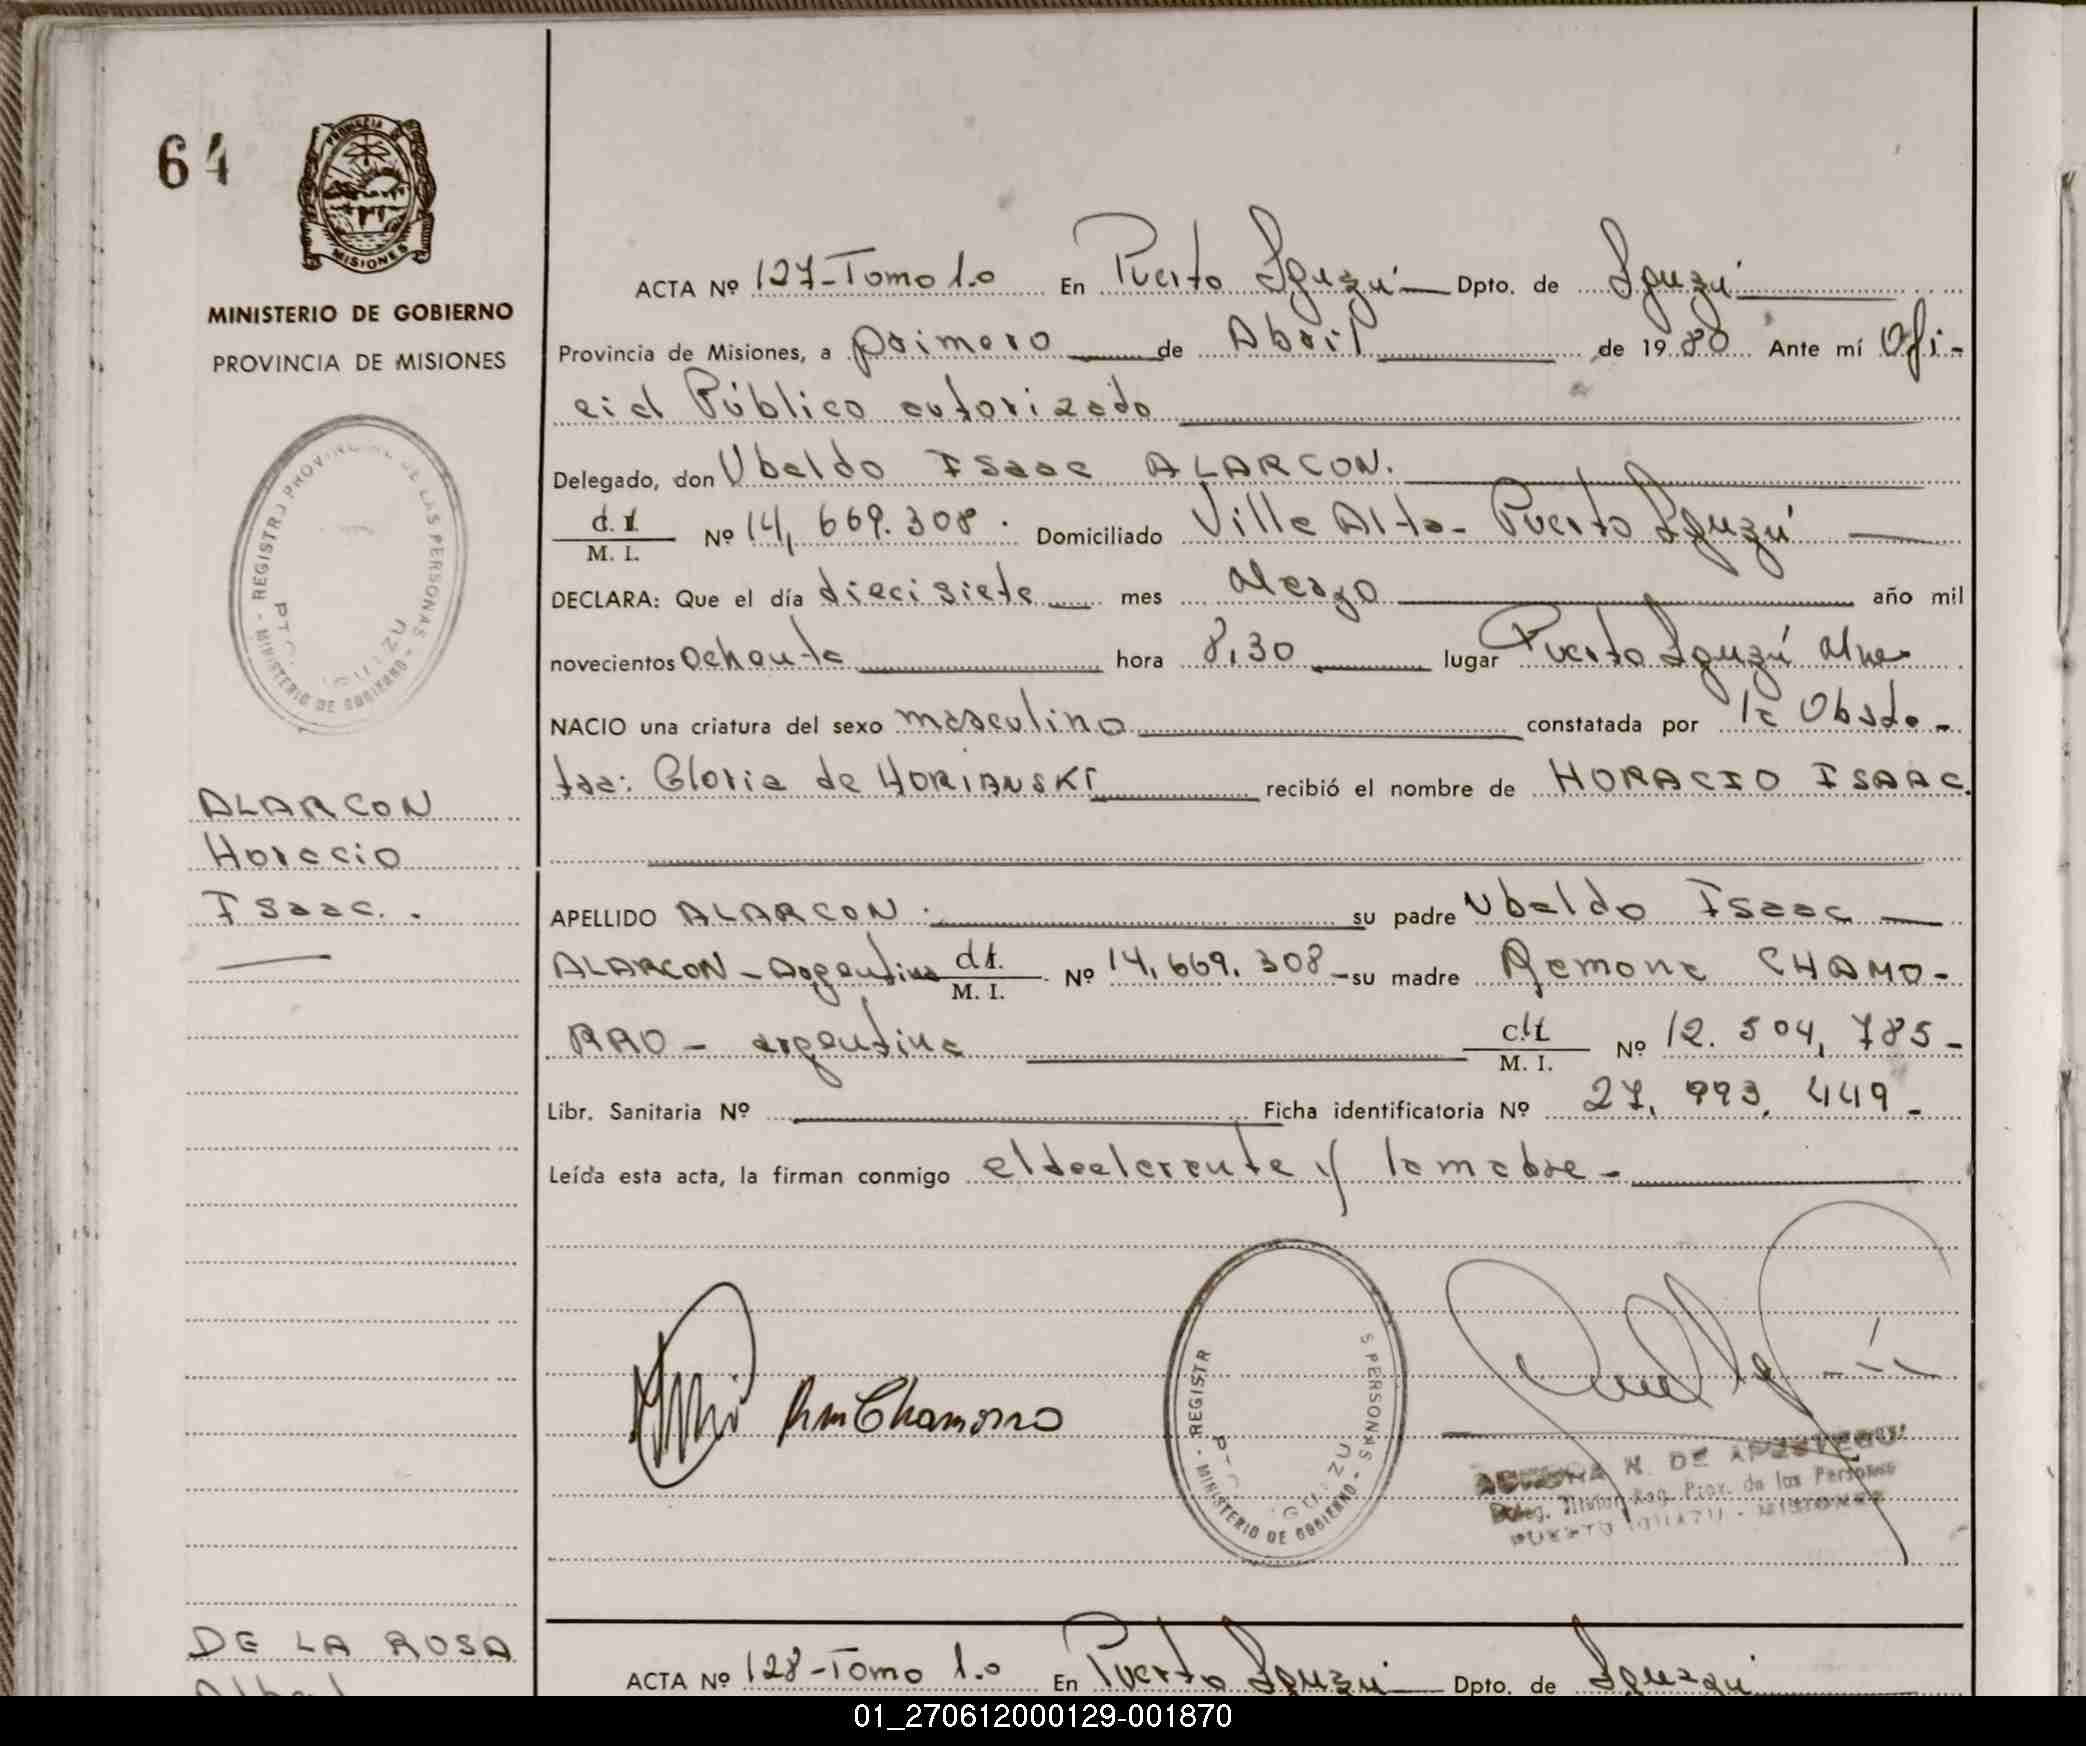 64
PROVINCIA
MISIONES
MINISTERIO DE GOBIERNO
PROVINCIA DE MISIONES
REGISTRO PROVINCIAL DE LAS PERSONAS - MINISTERIO DE GOBIERNO -
ALARCON
Horacio
Isaac.
ACTA Nº 127-Tomo 1.o En Puerto Iguazú Dpto. de Iguazú
Provincia de Misiones, a primero de Abril de 1980 Ante mí Ofi-
cial Público autorizado
Delegado, don Ubaldo Isaac ALARCON.
d.I.
M. I. Nº 14,669.308. Domiciliado Villa Alta- Puerto Iguazú
DECLARA: Que el día diecisiete mes Marzo año mil
novecientos ochenta hora 8,30 lugar Puerto Iguazú Mnes
NACIO una criatura del sexo masculino constatada por la Obste-
tra: Gloria de HORIANSKI recibió el nombre de HORACIO ISAAC.
APELLIDO ALARCON. su padre Ubaldo Isaac
ALARCON - Argentino d.I. M. I. Nº 14,669,308- su madre Ramona CHAMO-
RRO - argentina M. I. Nº 12.504,785-
Libr. Sanitaria Nº Ficha identificatoria Nº 27,993,449-
Leída esta acta, la firman conmigo el declarante y la madre-
Chamorro
REGISTR S PERSONAS - MINISTERIO DE GOBIERNO -
DE
Reg. Prov. de las Personas
PUERTO IGUAZU - MISIONES
DE LA ROSA
ACTA Nº 128-Tomo 1.o En Puerto Iguazú Dpto. de Iguazú
01_270612000129-001870